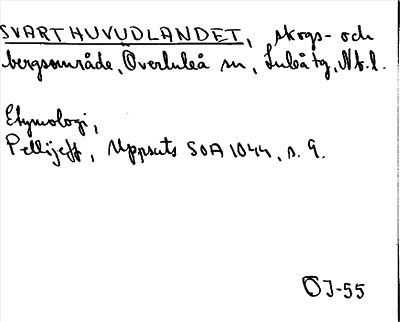 SVARTHUVUDLANDET, skogs- och
bergsområde, Överluleå sn, Luleå tg, Nb. l.
Etymologi,
Pellijeff, Uppsats SOA 1044, s. 9.
ÖJ-55